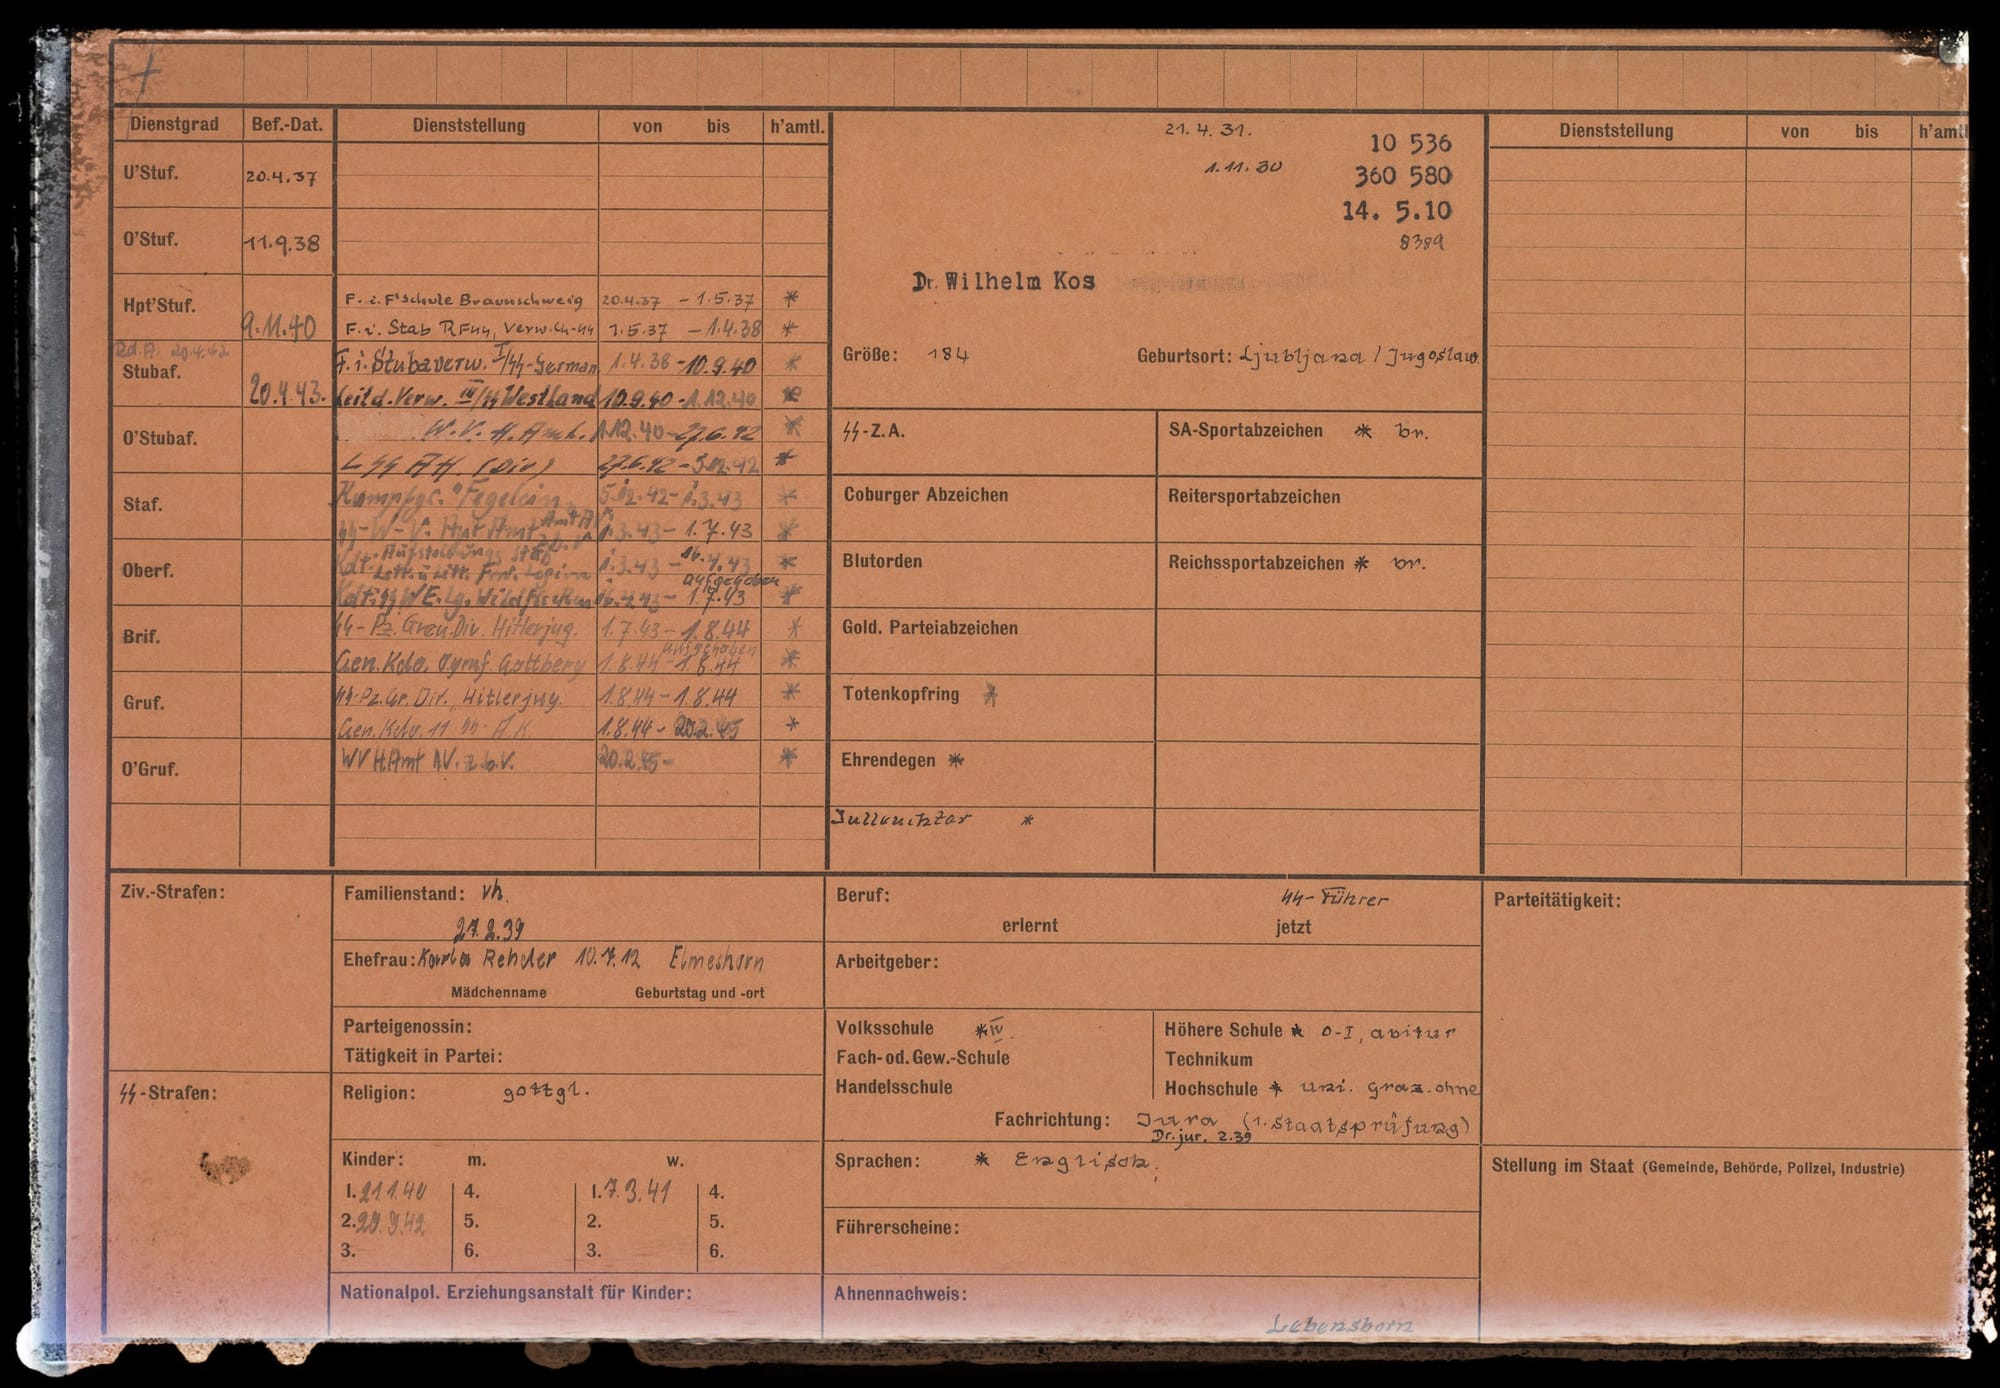 Dienstgrad Bef.-Dat. Dienststellung von bis h'amtl.
U'Stuf. 20.4.37
O'Stuf. 11.9.38
Hpt'Stuf. 9.11.40
F. i. F'schule Braunschweig 20.4.37 - 1.5.37 *
F. i. Stab RFSS, Verw.Ch-SS 1.5.37 - 1.4.38 *
Rd.A. 20.4.42
Stubaf. 20.4.43.
F. i. Stubaverw. I/SS-German. 1.4.38 - 10.9.40 *
Leit d. Verw. III/SS Westland 10.9.40 - 1.12.40 *
O'Stubaf.
W.V.H.Amt. 1.12.40 - 27.6.42 *
L SS AH (Div) 27.6.42 - 5.12.42 *
Staf.
Kampfgr. "Fegelein 5.12.42 - 1.3.43 *
SS-W-V. Hpt Amt Amt A 1.3.43 - 1.7.43 *
Oberf.
Kdt. Aufstellungs Stab
Lett. u. Litt. Frw. Legion 1.3.43 - 16.4.43 *
aufgegeben
Kdt: SS W.E.Lg. Wildflecken 16.4.43 - 1.7.43 *
Brif.
SS-Pz.Gren.Div. Hitlerjug. 1.7.43 - 1.8.44 *
aufgehoben
Gen.Kdo. Ogruf. Gottberg 1.8.44 - 1.8.44 *
Gruf.
SS-Pz.Gr.Div. "Hitlerjug. 1.8.44 - 1.8.44 *
Gen.Kdo. 11 SS-A.K. 1.8.44 - 20.2.45 *
O'Gruf.
WVHAmt AV. z.b.V. 20.2.45 - *
21.4.31. 10 536
1.11.30 360 580
14. 5.10
8389
Dr. Wilhelm Kos
Größe: 184 Geburtsort: Ljubljana / Jugoslaw.
SS-Z.A. SA-Sportabzeichen * br.
Coburger Abzeichen Reitersportabzeichen
Blutorden Reichssportabzeichen * br.
Gold. Parteiabzeichen
Totenkopfring *
Ehrendegen *
Julleuchter *
Dienststellung von bis h'amtl
Ziv.-Strafen:
SS-Strafen:
Familienstand: vh.
27.2.39
Ehefrau: Karla Rehder 10.7.12 Elmeshorn
Mädchenname Geburtstag und -ort
Parteigenossin:
Tätigkeit in Partei:
Religion: gottgl.
Kinder: m. w.
1. 21.1.40 4. 1. 7.3.41 4.
2. 29.9.42 5. 2. 5.
3. 6. 3. 6.
Nationalpol. Erziehungsanstalt für Kinder:
Beruf: SS-Führer
erlernt jetzt
Arbeitgeber:
Volksschule * IV. Höhere Schule * O-I, abitur
Fach-od.Gew.-Schule Technikum
Handelsschule Hochschule * uni. graz. ohne
Fachrichtung: Jura (1. Staatsprüfung)
Dr. jur. 2.39
Sprachen: * Englisch.
Führerscheine:
Ahnennachweis:
Lebensborn
Parteitätigkeit:
Stellung im Staat (Gemeinde, Behörde, Polizei, Industrie)